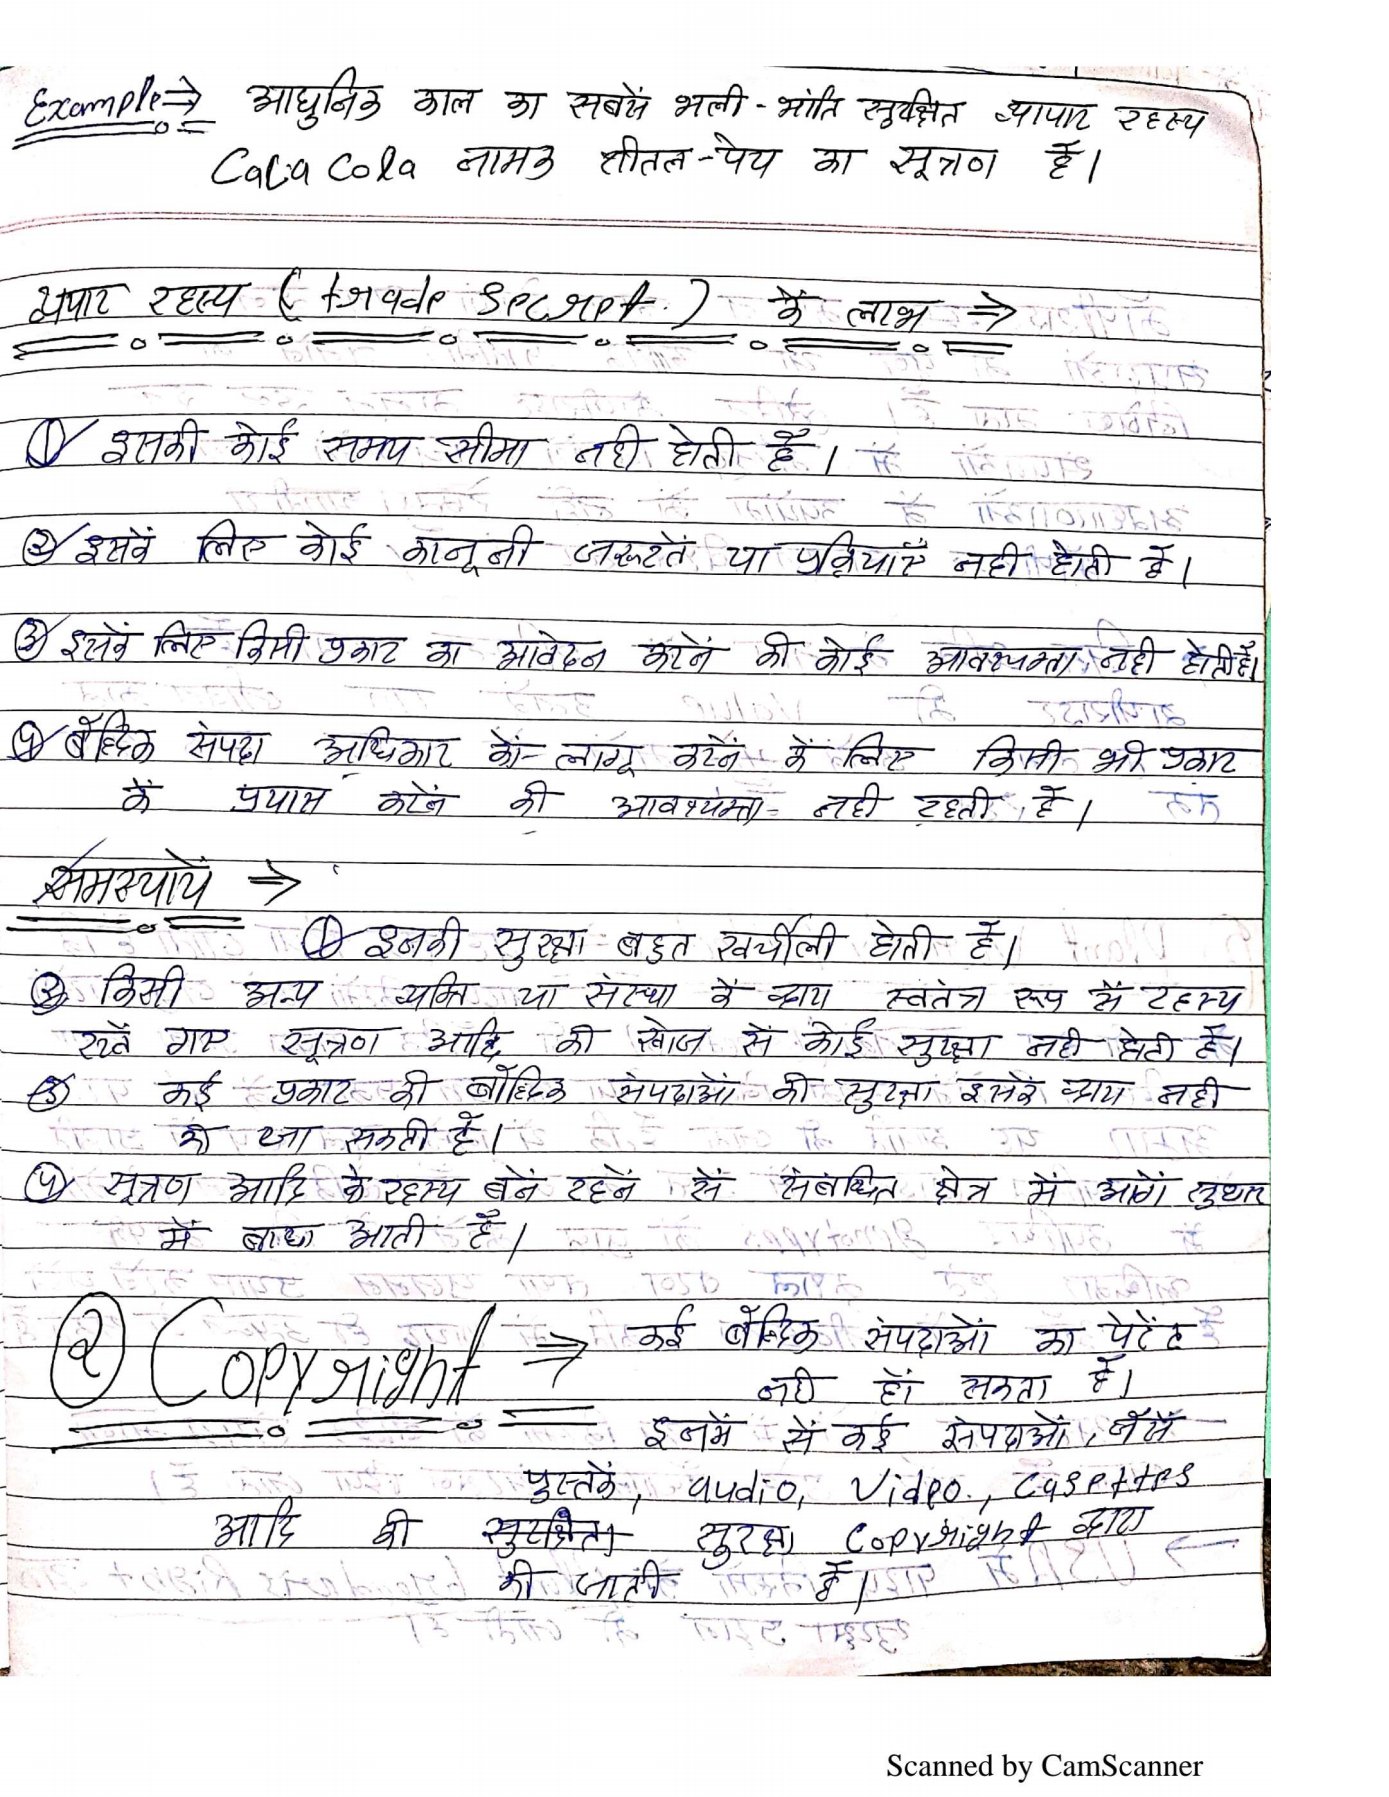 Example ⇒ आधुनिक काल का सबसें भली-भांति सुरक्षित व्यापार रहस्य
CaCa Cola नामक शीतल-पेय का सूत्रण हैं।
व्यापार रहस्य (trade secret.) कें लाभ ⇒
① इसकी कोई समय सीमा नही होती हैं।
② इसकें लिए कोई कानूनी जरूरतें या प्रक्रियाएँ नही होती हैं।
③ इसकें लिए किसी प्रकार का आवेदन करनें की कोई आवश्यकता नही होती हैं।
④ बौद्दिक संपदा अधिकार कों लागू करनें कें लिए किसी भी प्रकार
कें प्रयास करनें की आवश्यकता नही रहती हैं।
समस्यायें ⇒
① इनकी सुरक्षा बहुत खर्चीली होती हैं।
② किसी अन्य व्यक्ति या संस्था कें द्वारा स्वतंत्र रूप सें रहस्य
रखें गए सूत्रण आदि की खोज सें कोई सुरक्षा नही होती हैं।
③ कई प्रकार की बौद्दिक संपदाओं की सुरक्षा इसकें द्वारा नही
की जा सकती हैं।
④ सूत्रण आदि के रहस्य बनें रहनें सें संबंधित क्षेत्र में आगें सुधार
में बाधा आती हैं।
② Copyright ⇒ कई बौद्दिक संपदाओं का पेटेंट
नही हों सकता हैं।
इनमें सें कई संपदाओं, जैसें
पुस्तकें, audio, Video., Casettes
आदि की सुरक्षित। सुरक्षा Copyright द्वारा
की जाती हैं।
Scanned by CamScanner